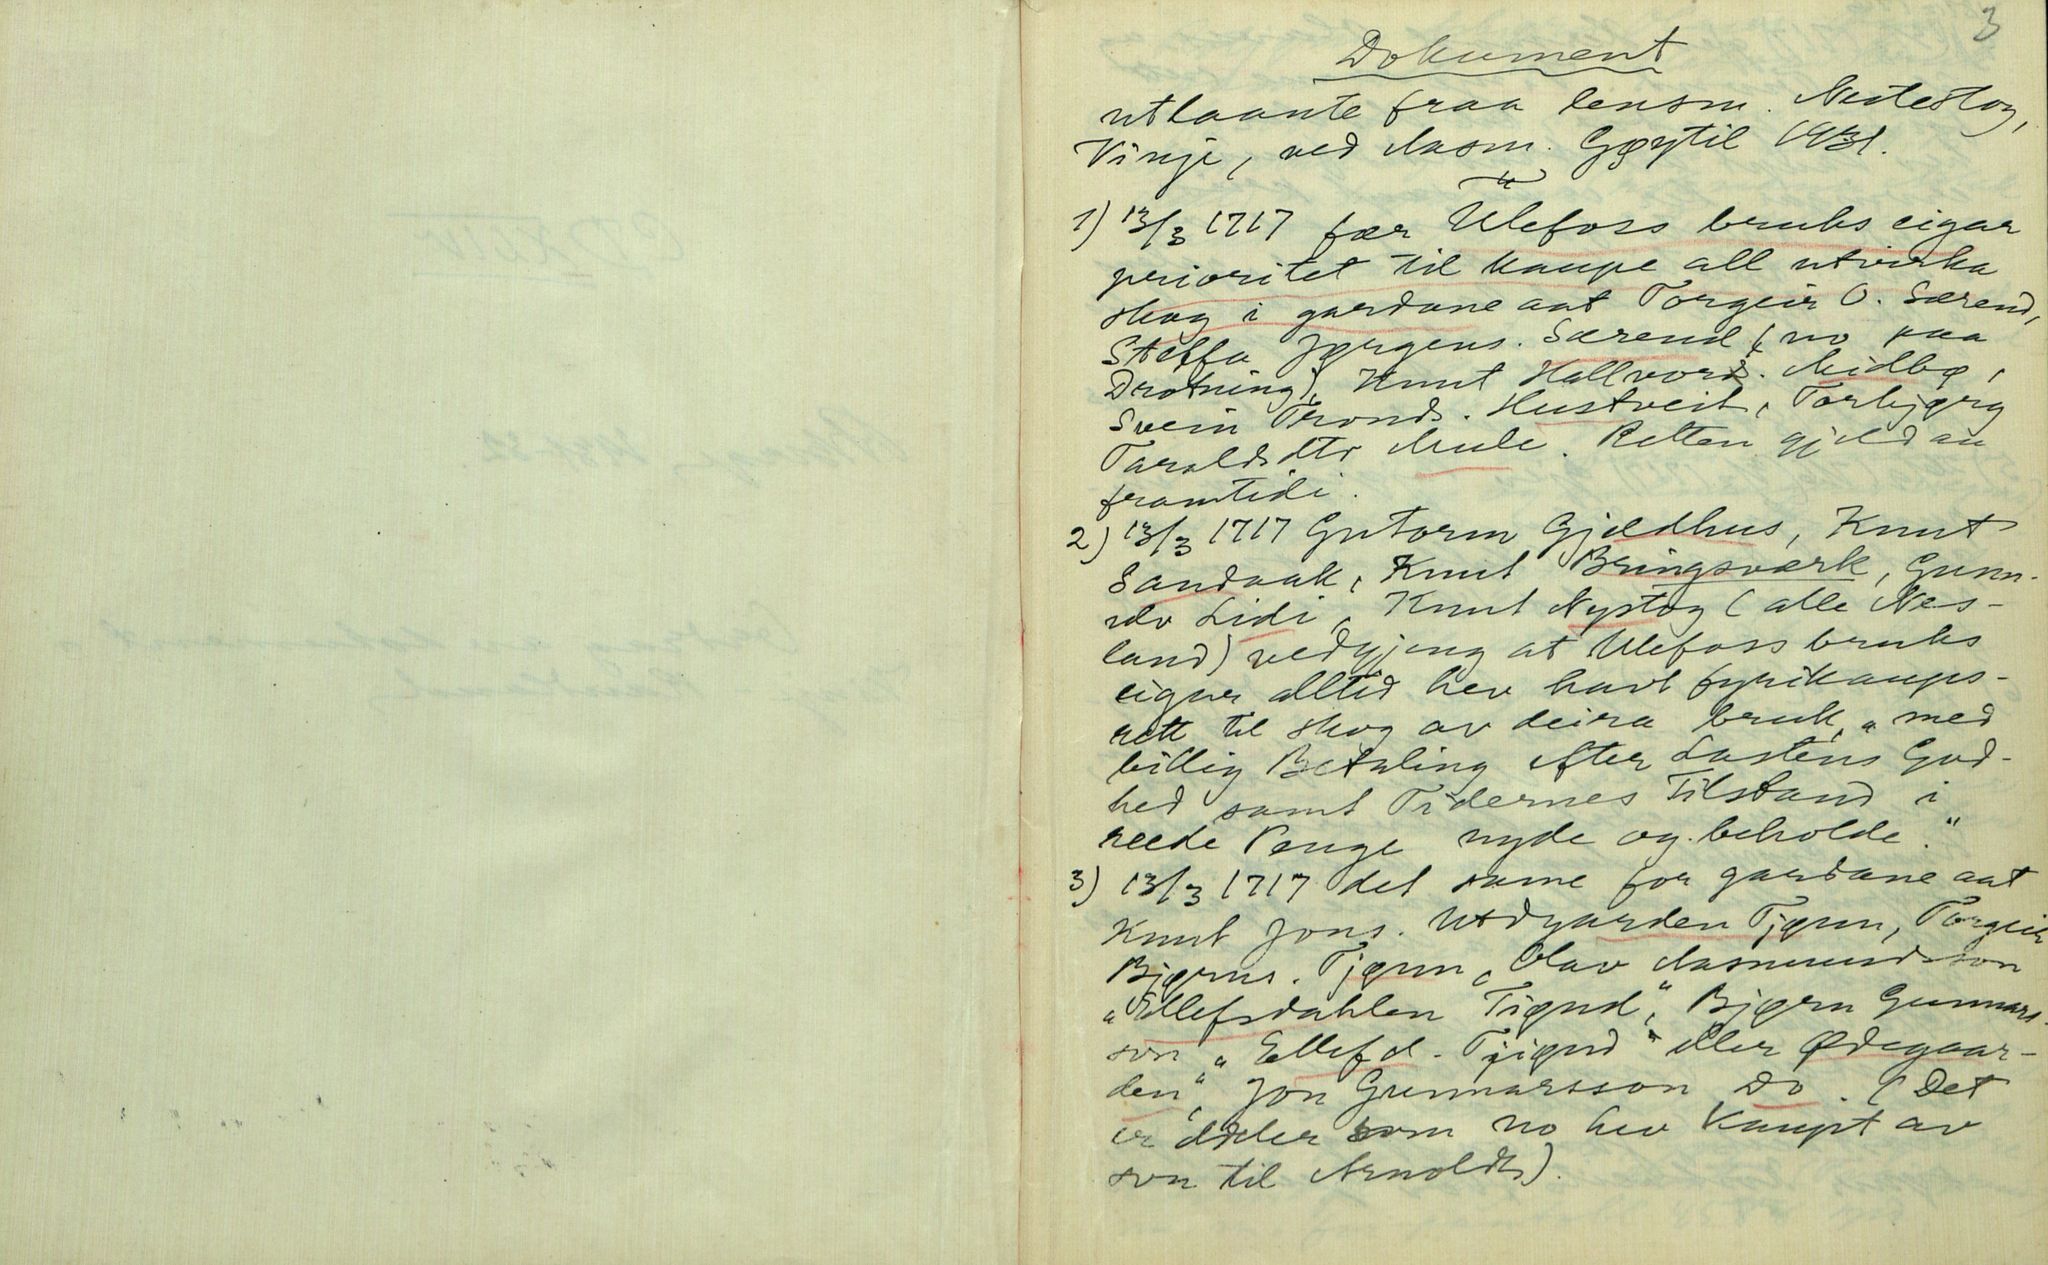 3
Dokument
utlaante fraa lensm. Nestestog,
Vinje, ved Aasm. Gøytil 1931.
1) 13/3 1717 fær Ulefoss bruks eigar
prioritet til kaupe all utvirka
skog i gardane aat Torgeir O. Særend,
Steffa Jørgens. Særend (no paa
Drotning), Knut Hallvords. Midbø,
Svein Tronds. Hustveit, Torbjørg
Taraldsdtr Mule. Retten gjeld au
framtidi.
2) 13/3 1717 Gutorm Gjældhus, Knut
Sandaak, Knut Bringsværk, Gunn-
ulv Lidi, Knut Nystog (alle Nes-
land) vedgjeng at Ulefoss bruks
eigar alltid hev havt fyrikaups-
rett til skog av deira bruk, "med
billig Betaling efter Lastens God-
hed samt Tidernes Tilstand i
reede Penge nyde og beholde."
3) 13/3 1717 det same for gardane aat
Knut Jons. Utdgarden Tjønn, Torgeir
Bjørns. Tjønn, Olav Aasmundsson
"Ellefsdahlen Tiønd", Bjørn Gunnars-
son "Ellefd. Tjiønd" eller Ødegaar-
den", Jon Gunnarsson Do. (Det
er deler som no hev kaupt av
son til Arnoldt).